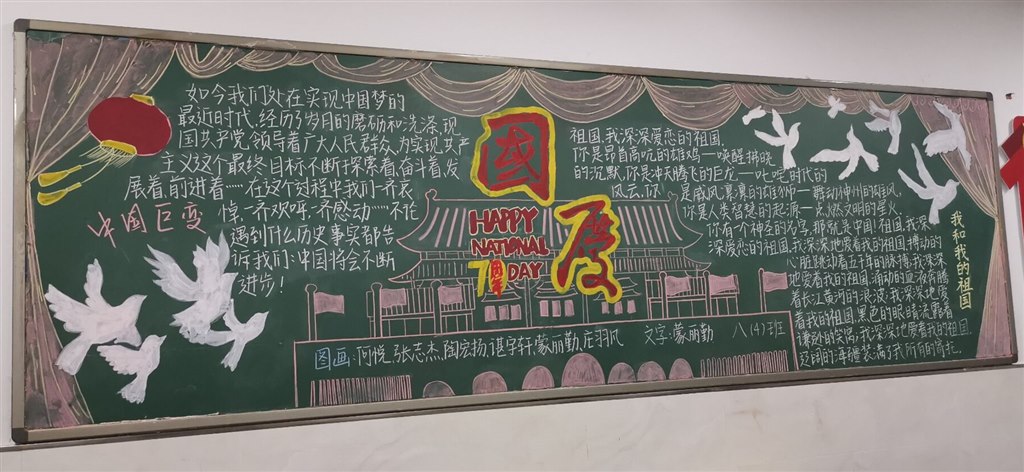 如今我们处在实现中国梦的
最近时代,经历了岁月的磨砺和洗涤,现
国共产党,领导着广大人民群众,为实现共产
主义这个最终目标不断于探索着、奋斗着、发
展着、前进着……在这个过程中我们一齐哀
悼,一齐欢呼,一齐感动……不论
遇到什么历史事实都告
诉我们:中国将会不断
进步!
中国巨变
國
慶
HAPPY
NATIONAL
70周年DAY
祖国,我深深爱恋的祖国.
你是昂首高吭的雄鸡—唤醒拂晓
的沉默,你是冲天腾飞的巨龙—叱咤时代的
风云,你
是威风凛凛的雄狮—舞动神州的雄风.
你是人类智慧的起源—点燃文明的星火.
你有一个神圣的名字,那就是中国!祖国,我深
深爱恋的祖国.我深深地爱着我的祖国,搏动的
心脏跳动着五千年的脉搏,我深深
地爱着我的祖国.涌动的血液奔腾
着长江黄河的浪波,我深深地爱
着我的祖国.黑色的眼睛流露着
谦逊的笑窝,我深深地爱着我的祖国.
我和我的祖国
图画:何悦,张志杰,陶宏扬,谌宇轩,蒙丽勤,庄羽凡
文字:蒙丽勤
八(4)班